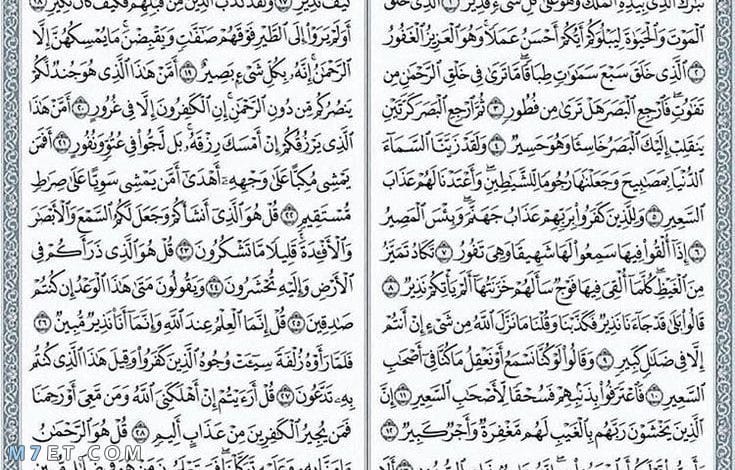 تَبَٰرَكَ ٱلَّذِى بِيَدِهِ ٱلْمُلْكُ وَهُوَ عَلَىٰ كُلِّ شَىْءٍ قَدِيرٌ ١ ٱلَّذِى خَلَقَ
ٱلْمَوْتَ وَٱلْحَيَوٰةَ لِيَبْلُوَكُمْ أَيُّكُمْ أَحْسَنُ عَمَلًا وَهُوَ ٱلْعَزِيزُ ٱلْغَفُورُ
٢ ٱلَّذِى خَلَقَ سَبْعَ سَمَٰوَٰتٍ طِبَاقًا مَّا تَرَىٰ فِى خَلْقِ ٱلرَّحْمَٰنِ مِن
تَفَٰوُتٍ فَٱرْجِعِ ٱلْبَصَرَ هَلْ تَرَىٰ مِن فُطُورٍ ٣ ثُمَّ ٱرْجِعِ ٱلْبَصَرَ كَرَّتَيْنِ
يَنقَلِبْ إِلَيْكَ ٱلْبَصَرُ خَاسِئًا وَهُوَ حَسِيرٌ ٤ وَلَقَدْ زَيَّنَّا ٱلسَّمَآءَ
ٱلدُّنْيَا بِمَصَٰبِيحَ وَجَعَلْنَٰهَا رُجُومًا لِّلشَّيَٰطِينِ وَأَعْتَدْنَا لَهُمْ عَذَابَ
ٱلسَّعِيرِ ٥ وَلِلَّذِينَ كَفَرُوا۟ بِرَبِّهِمْ عَذَابُ جَهَنَّمَ وَبِئْسَ ٱلْمَصِيرُ
٦ إِذَآ أُلْقُوا۟ فِيهَا سَمِعُوا۟ لَهَا شَهِيقًا وَهِىَ تَفُورُ ٧ تَكَادُ تَمَيَّزُ
مِنَ ٱلْغَيْظِ كُلَّمَآ أُلْقِىَ فِيهَا فَوْجٌ سَأَلَهُمْ خَزَنَتُهَآ أَلَمْ يَأْتِكُمْ نَذِيرٌ ٨
قَالُوا۟ بَلَىٰ قَدْ جَآءَنَا نَذِيرٌ فَكَذَّبْنَا وَقُلْنَا مَا نَزَّلَ ٱللَّهُ مِن شَىْءٍ إِنْ أَنتُمْ
إِلَّا فِى ضَلَٰلٍ كَبِيرٍ ٩ وَقَالُوا۟ لَوْ كُنَّا نَسْمَعُ أَوْ نَعْقِلُ مَا كُنَّا فِىٓ أَصْحَٰبِ
ٱلسَّعِيرِ ١٠ فَٱعْتَرَفُوا۟ بِذَنۢبِهِمْ فَسُحْقًا لِّأَصْحَٰبِ ٱلسَّعِيرِ ١١ إِنَّ
ٱلَّذِينَ يَخْشَوْنَ رَبَّهُم بِٱلْغَيْبِ لَهُم مَّغْفِرَةٌ وَأَجْرٌ كَبِيرٌ ١٢
كَيْفَ نَذِيرِ ١٧ وَلَقَدْ كَذَّبَ ٱلَّذِينَ مِن قَبْلِهِمْ فَكَيْفَ كَانَ نَكِيرِ ١٨
أَوَلَمْ يَرَوْا۟ إِلَى ٱلطَّيْرِ فَوْقَهُمْ صَٰٓفَّٰتٍ وَيَقْبِضْنَ مَا يُمْسِكُهُنَّ إِلَّا
ٱلرَّحْمَٰنُ إِنَّهُۥ بِكُلِّ شَىْءٍۭ بَصِيرٌ ١٩ أَمَّنْ هَٰذَا ٱلَّذِى هُوَ جُندٌ لَّكُمْ
يَنصُرُكُم مِّن دُونِ ٱلرَّحْمَٰنِ إِنِ ٱلْكَٰفِرُونَ إِلَّا فِى غُرُورٍ ٢٠ أَمَّنْ هَٰذَا
ٱلَّذِى يَرْزُقُكُمْ إِنْ أَمْسَكَ رِزْقَهُۥ بَل لَّجُّوا۟ فِى عُتُوٍّ وَنُفُورٍ ٢١ أَفَمَن
يَمْشِى مُكِبًّا عَلَىٰ وَجْهِهِۦٓ أَهْدَىٰٓ أَمَّن يَمْشِى سَوِيًّا عَلَىٰ صِرَٰطٍ
مُّسْتَقِيمٍ ٢٢ قُلْ هُوَ ٱلَّذِىٓ أَنشَأَكُمْ وَجَعَلَ لَكُمُ ٱلسَّمْعَ وَٱلْأَبْصَٰرَ
وَٱلْأَفْـِٔدَةَ قَلِيلًا مَّا تَشْكُرُونَ ٢٣ قُلْ هُوَ ٱلَّذِى ذَرَأَكُمْ فِى
ٱلْأَرْضِ وَإِلَيْهِ تُحْشَرُونَ ٢٤ وَيَقُولُونَ مَتَىٰ هَٰذَا ٱلْوَعْدُ إِن كُنتُمْ
صَٰدِقِينَ ٢٥ قُلْ إِنَّمَا ٱلْعِلْمُ عِندَ ٱللَّهِ وَإِنَّمَآ أَنَا۠ نَذِيرٌ مُّبِينٌ ٢٦
فَلَمَّا رَأَوْهُ زُلْفَةً سِيٓـَٔتْ وُجُوهُ ٱلَّذِينَ كَفَرُوا۟ وَقِيلَ هَٰذَا ٱلَّذِى كُنتُم
بِهِۦ تَدَّعُونَ ٢٧ قُلْ أَرَءَيْتُمْ إِنْ أَهْلَكَنِىَ ٱللَّهُ وَمَن مَّعِىَ أَوْ رَحِمَنَا
فَمَن يُجِيرُ ٱلْكَٰفِرِينَ مِنْ عَذَابٍ أَلِيمٍ ٢٨ قُلْ هُوَ ٱلرَّحْمَٰنُ
M7ET.COM